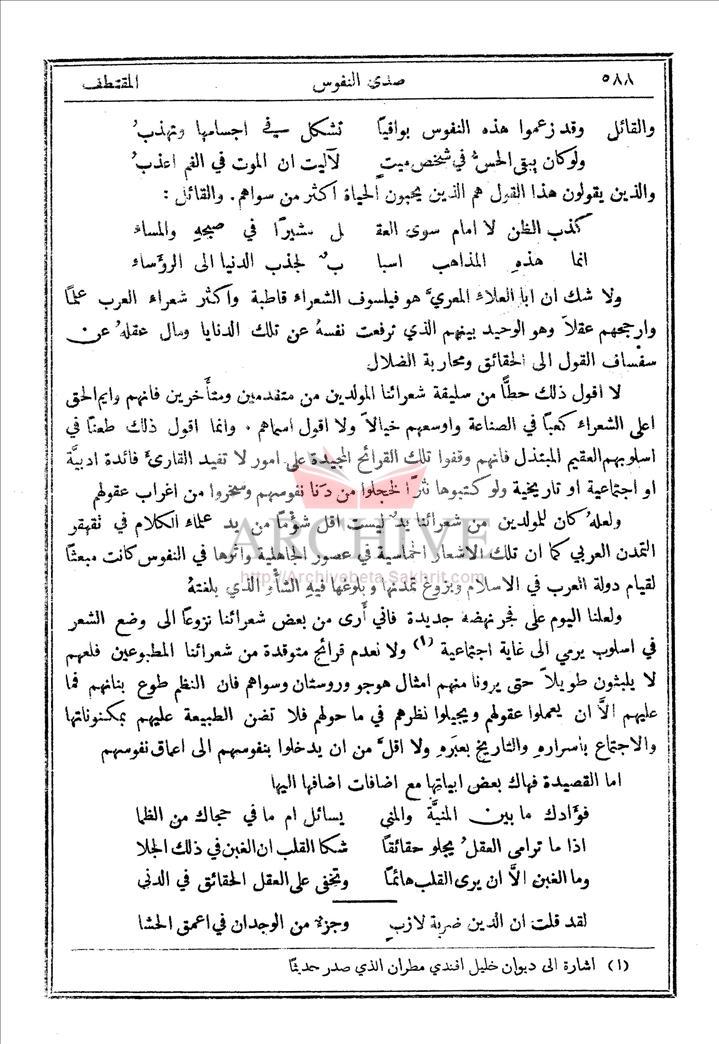 ٥٨٨ صدى النفوس المقتطف
والقائل وقد زعموا هذه النفوس بواقياً تشكل في اجسامها وتهذبُ
ولو كان يبقى الحسُّ في شخص ميتٍ لآليت ان الموت في الفم اعذبُ
والذين يقولون هذا القول هم الذين يحبون الحياة اكثر من سواهم. والقائل :
كذب الظن لا امام سوى العقـ ـل مشيرًا في صبحهِ والمساء
انما هذهِ المذاهب اسبا بٌ لجذب الدنيا الى الرؤساء
ولا شك ان ابا العلاءِ المعريَّ هو فيلسوف الشعراء قاطبة وأكثر شعراء العرب علمًا
وارجحهم عقلاً وهو الوحيد بينهم الذي ترفعت نفسهُ عن تلك الدنايا ومال عقلهُ عن
سفساف القول الى الحقائق ومحاربة الضلال
لا اقول ذلك حطًّا من سليقة شعرائنا المولدين من متقدمين ومتأخرين فانهم وايم الحق
اعلى الشعراء كعبًا في الصناعة واوسعهم خيالاً ولا اقول اسماهم . وانما اقول ذلك طعنًا في
اسلوبهم العقيم المبتذل فانهم وقفوا تلك القرائح المجيدة على امور لا تفيد القارئ فائدة ادبيَّة
او اجتماعية او تاريخية ولو كتبوها نثرًا لخجلوا من دنا نفوسهم وسخروا من اغراب عقولهم
ولعلهُ كان للمولدين من شعرائنا يدٌ ليست اقل شؤمًا من يد علماء الكلام في تقهقر
التمدن العربي كما ان تلك الاشعار الحماسية في عصور الجاهلية واثرها في النفوس كانت مبعثًا
لقيام دولة العرب في الاسلام وبزوغ تمدنها وبلوغها فيهِ الشأو الذي بلغتهُ
ولعلنا اليوم على فجر نهضة جديدة فاني أرى من بعض شعرائنا نزوعًا الى وضع الشعر
في اسلوب يرمي الى غاية اجتماعية (١) ولا نعدم قرائح متوقدة من شعرائنا المطبوعين فلعلهم
لا يلبثون طويلاً حتى يرونا منهم امثال هوجو وروستان وسواهم فان النظم طوع بنانهم فما
عليهم الاَّ ان يعملوا عقولهم ويجيلوا نظرهم في ما حولهم فلا تضن الطبيعة عليهم بمكنوناتها
والاجتماع باسرارهِ والتاريخ بعبَره ولا اقلَّ من ان يدخلوا بنفوسهم الى اعماق نفوسهم
اما القصيدة فهاك بعض ابياتها مع اضافات اضافها اليها
فوءادك ما بين المنيَّة والمنى يسائل ام ما في حجاك من الظا
اذا ما ترامى العقلُ يجلو حقائقًا شكا القلب ان الغبن في ذلك الجلا
وما الغبن الاَّ ان يرى القلب هائمًا وتخفى على العقل الحقائق في الدنى
لقد قلت ان الدين ضربة لازبٍ وجزءٌ من الوجدان في اعمق الحشا
(١) اشارة الى ديوان خليل افندي مطران الذي صدر حديثًا
ARCHIVE
http://Archivebeta.Sakhrit.com